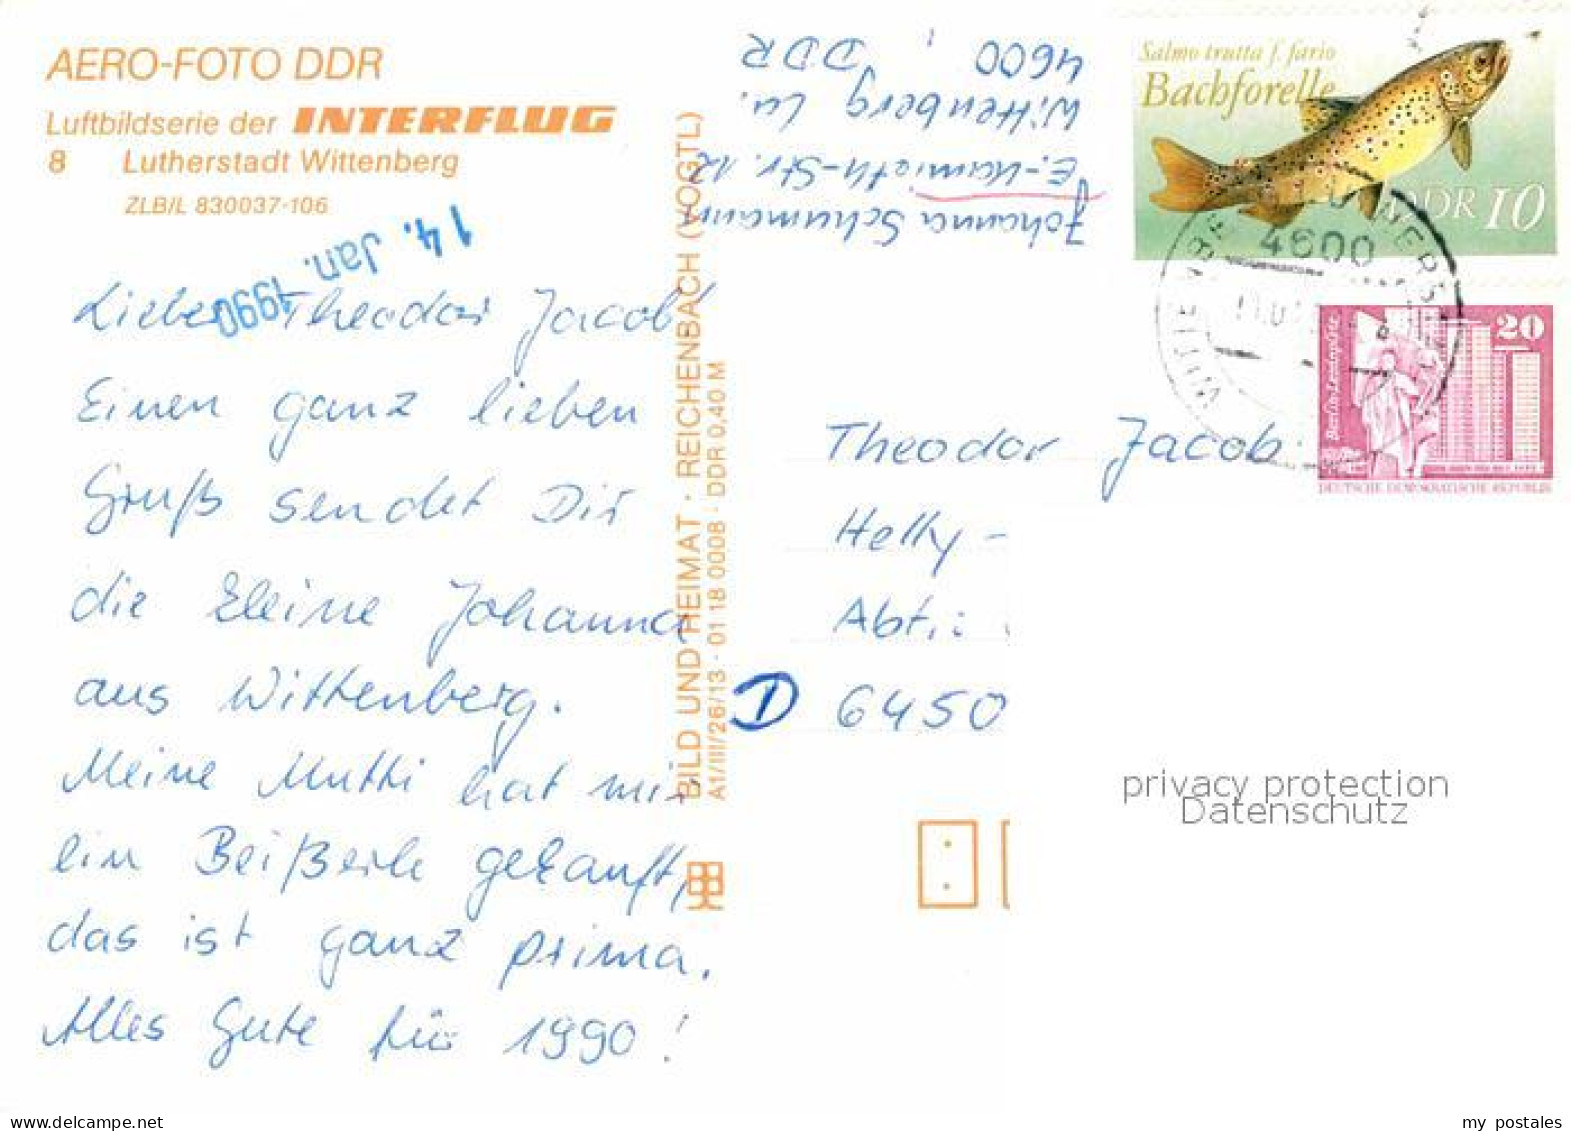 AERO-FOTO DDR
Luftbildserie der INTERFLUG
8 Lutherstadt Wittenberg
ZLB/L 830037-106
14. Jan. 1990
Lieber Theodor Jacob
Einen ganz lieben
Gruß sendet Dir
die kleine Johanna
aus Wittenberg.
Meine Mutti hat mir
ein Beißerle gekauft,
das ist ganz prima.
Alles Gute für 1990!
BILD UND HEIMAT · REICHENBACH (VOGTL)
A1/III/26/13 · 01 18 0008 · DDR 0,40 M
Johanna Schumann
E.-Kamieth-Str. 12
Wittenberg Lu.
4600, DDR
Salmo trutta f. fario
Bachforelle
DDR 10
4600
20
Berlin-Leninplatz
DEUTSCHE DEMOKRATISCHE REPUBLIK
Theodor Jacob
Helly-
Abt.:
D 6450
privacy protection
Datenschutz
my postales